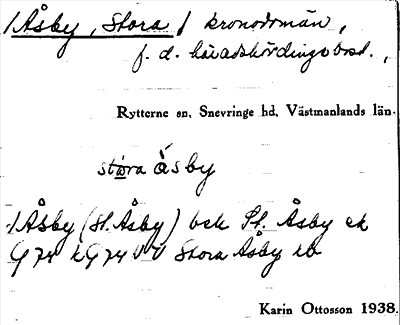 /Åsby, Stora / kronodomän,
f. d. häradshövdingebost.,
Rytterne sn, Snevringe hd, Västmanlands län.
stora åsby
/Åsby (St. Åsby) och St. Åsby ek
G 74 Stora Åsby kb
Karin Ottosson 1938.